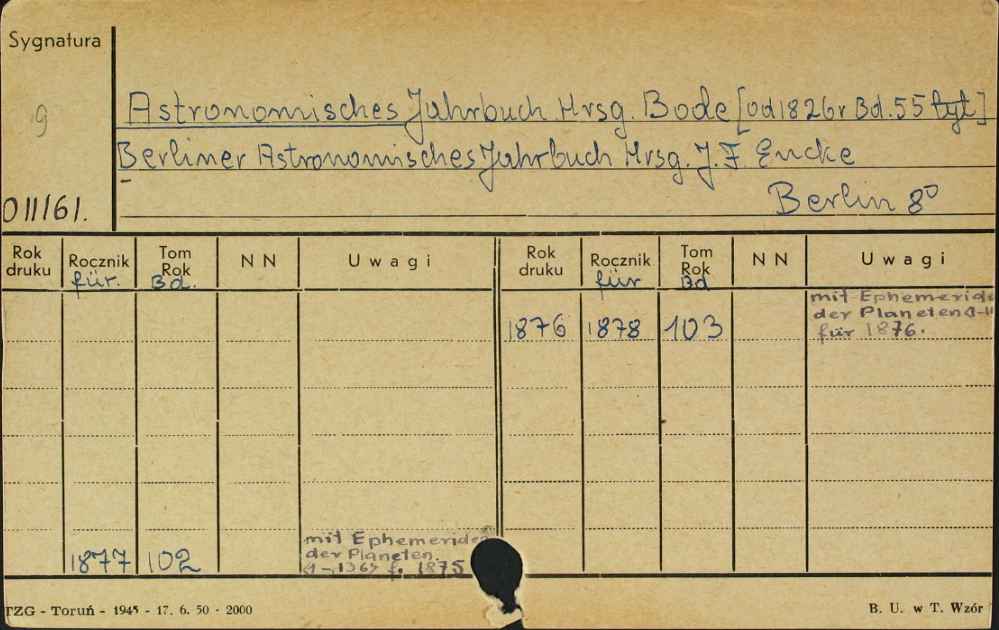 Sygnatura
9
Astronomisches Jahrbuch Hrsg. Bode [od 1826r Bd. 55 tyt]
Berliner Astronomisches Jahrbuch Hrsg. J. F. Encke
011/61.
Berlin 8°
Rok druku Rocznik für. Tom Rok Bd. NN Uwagi Rok druku Rocznik für Tom Rok Bd NN Uwagi
1876 1878 103 mit Ephemeride
der Planeten
für 1876.
1877 102 mit Ephemeride
der Planeten.
f. 1875
TZG - Toruń - 1945 - 17. 6. 50 - 2000
B. U. w T. Wzór